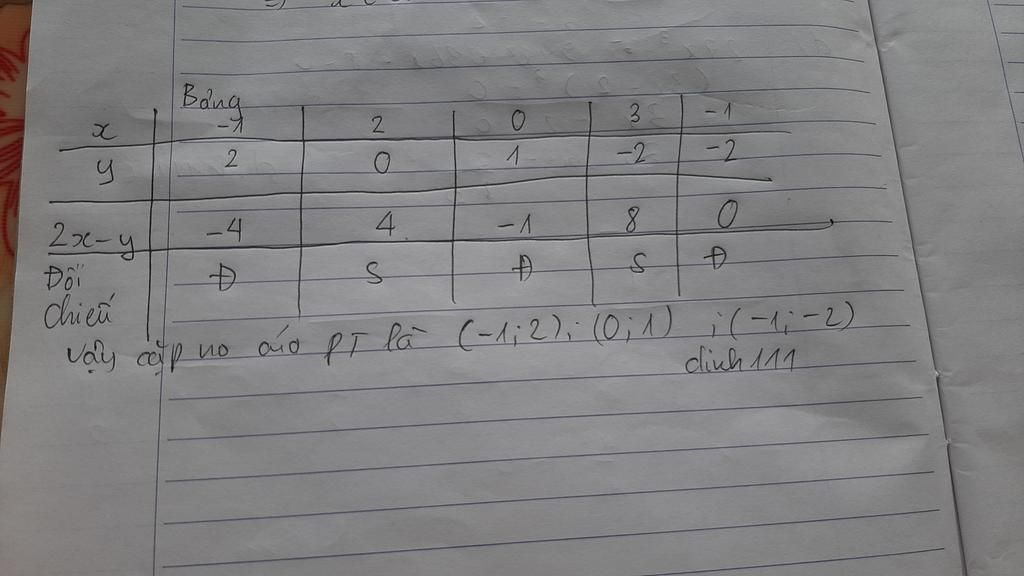 Bảng
x -1 2 0 3 -1
y 2 0 1 -2 -2
2x-y -4 4 -1 8 0
Đối Đ S Đ S Đ
chiếu
Vậy cặp no PT là (-1;2);(0;1) ;(-1;-2)
dinh111